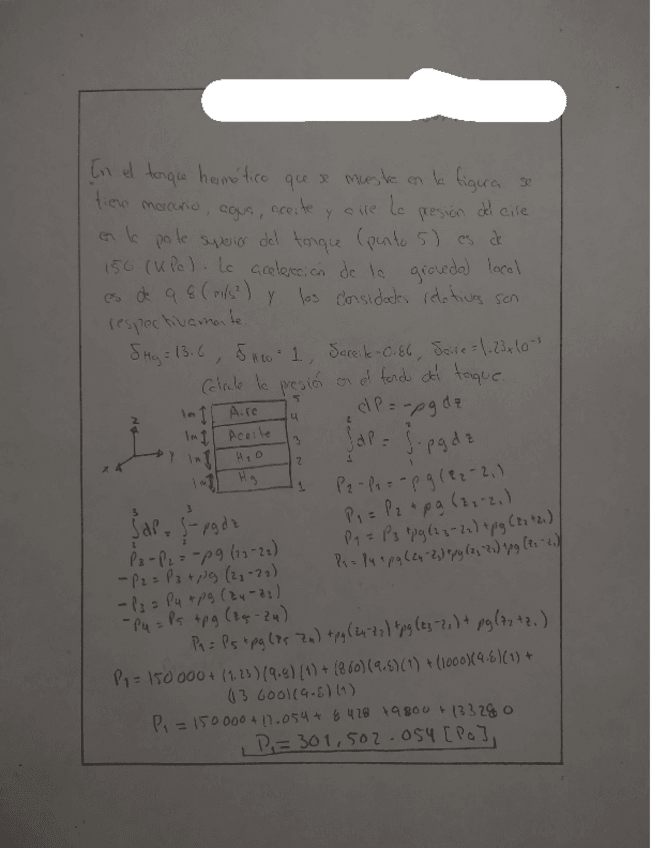 En el tanque hermético que se muestra en la figura se
tiene mercurio, agua, aceite y aire La presión del aire
en la parte superior del tanque (punto 5) es de
150 (KPa). La aceleración de la gravedad local
es de 9.8 (m/s²) y las densidades relativas son
respectivamente.
δHg = 13.6, δH2O = 1, δaceite = 0.86, δaire = 1.23x10⁻³
Calcule la presión en el fondo del tanque.
z
y
x
1m Aire 5
1m Aceite 4
1m H2O 3
1m Hg 2
1
dP = -ρgdz
∫₁² dP = ∫₁² -ρgdz
P2 - P1 = -ρg(z2-z1)
P1 = P2 + ρg(z2-z1)
P1 = P3 + ρg(z3-z2) + ρg(z2+z1)
P1 = P4 + ρg(z4-z3) + ρg(z3-z2) + ρg(z2-z1)
∫₂³ dP = ∫₂³ -ρgdz
P3 - P2 = -ρg(z3-z2)
-P2 = P3 + ρg(z3-z2)
-P3 = P4 + ρg(z4-z3)
-P4 = P5 + ρg(z5-z4)
P1 = P5 + ρg(z5-z4) + ρg(z4-z3) + ρg(z3-z2) + ρg(z2+z1)
P1 = 150000 + (1.23)(9.8)(1) + (860)(9.8)(1) + (1000)(9.8)(1) +
(13600)(9.8)(1)
P1 = 150000 + 12.054 + 8428 + 9800 + 133280
P1 = 301,502.054 [Pa]